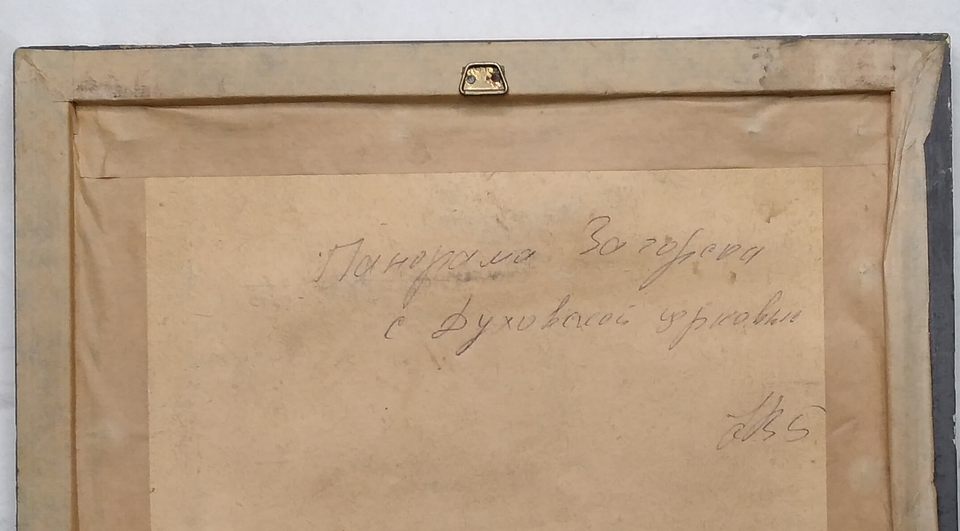 Панорама Загорска
с Духовской церковью